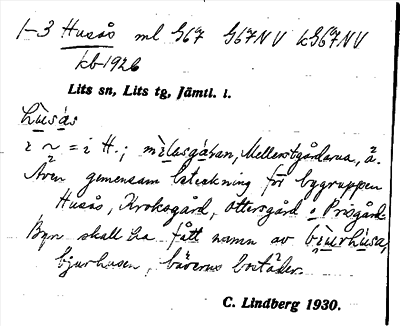 1–3 Husås ml G67 G67NV kG67NV
kb 1926
Lits sn, Lits tg, Jämtl. l.
hùsás
i ~ = i H.; Mellerstgårdarna, ä.
Även gemensam beteckning för bygruppen
Husås, Kroksgård, Ottersgård o Prisgård
Byn skall ha fått namn av bjurhusa,
bjurhusen, bäverns bostäder.
C. Lindberg 1930.